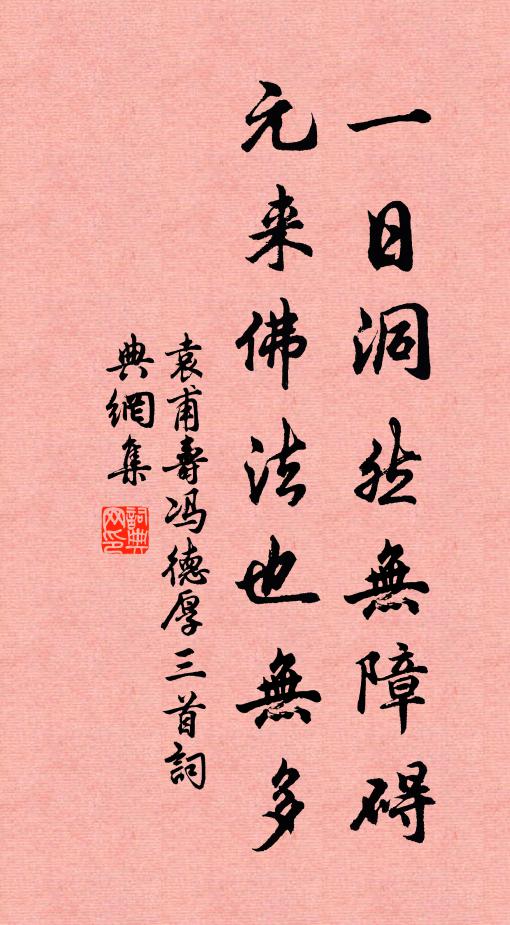 一日洞然無障碍
元来佛法也無多
袁甫壽冯德厚三首詞
典網集
詞典
网印